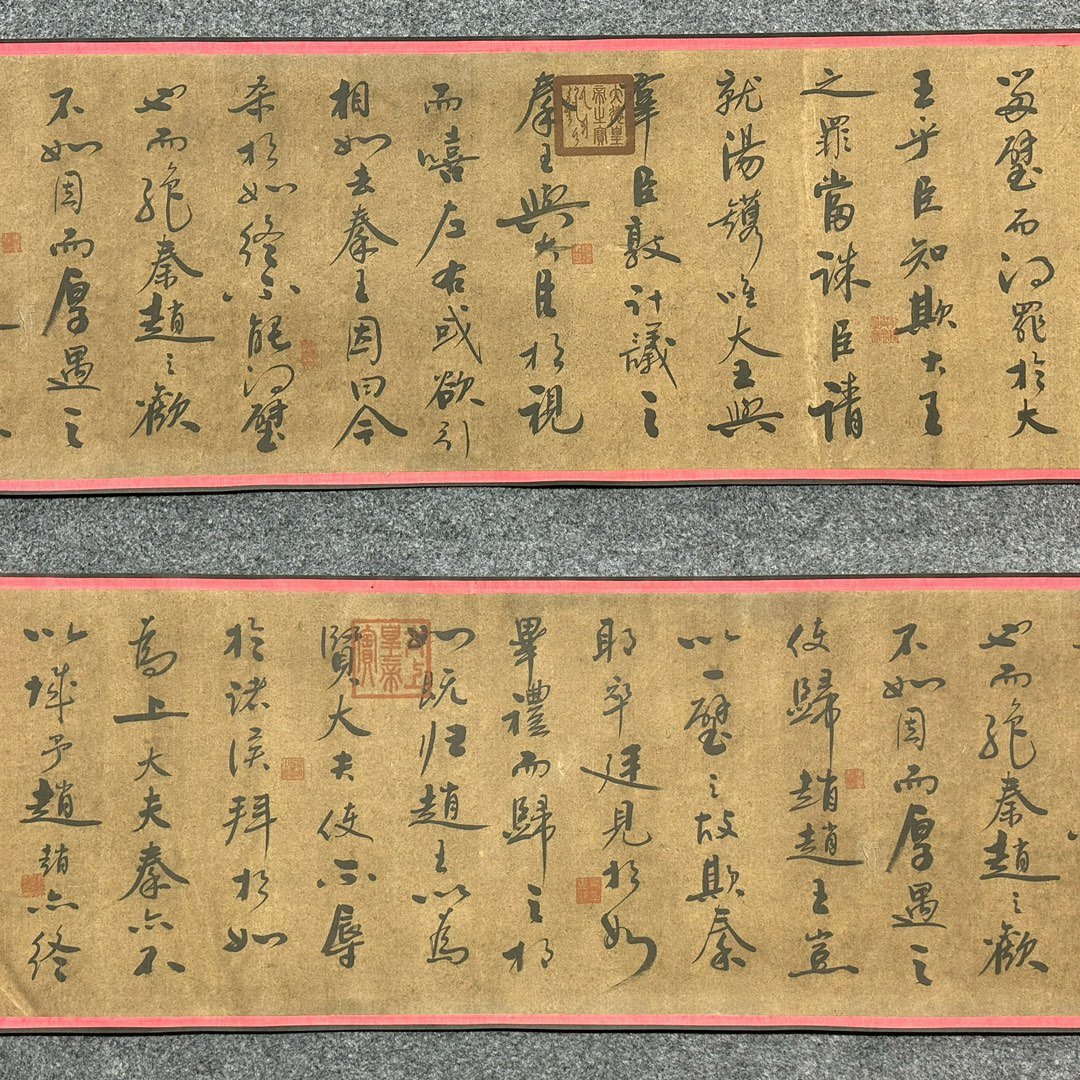 留璧而得罪於大
王乎臣知欺大王
之罪當誅臣請
就湯鑊唯大王與
羣臣孰計議之
秦王與大臣相視
而嘻左右或欲引
相如去秦王因曰今
杀相如終不能得璧
也而絕秦趙之歡
不如因而厚遇之
也而絕秦趙之歡
不如因而厚遇之
使歸趙趙王豈
以一璧之故欺秦
耶卒廷見相如
畢禮而歸之相
如既归趙王以為
賢大夫使不辱
於諸侯拜相如
為上大夫秦亦不
以城予趙趙亦終